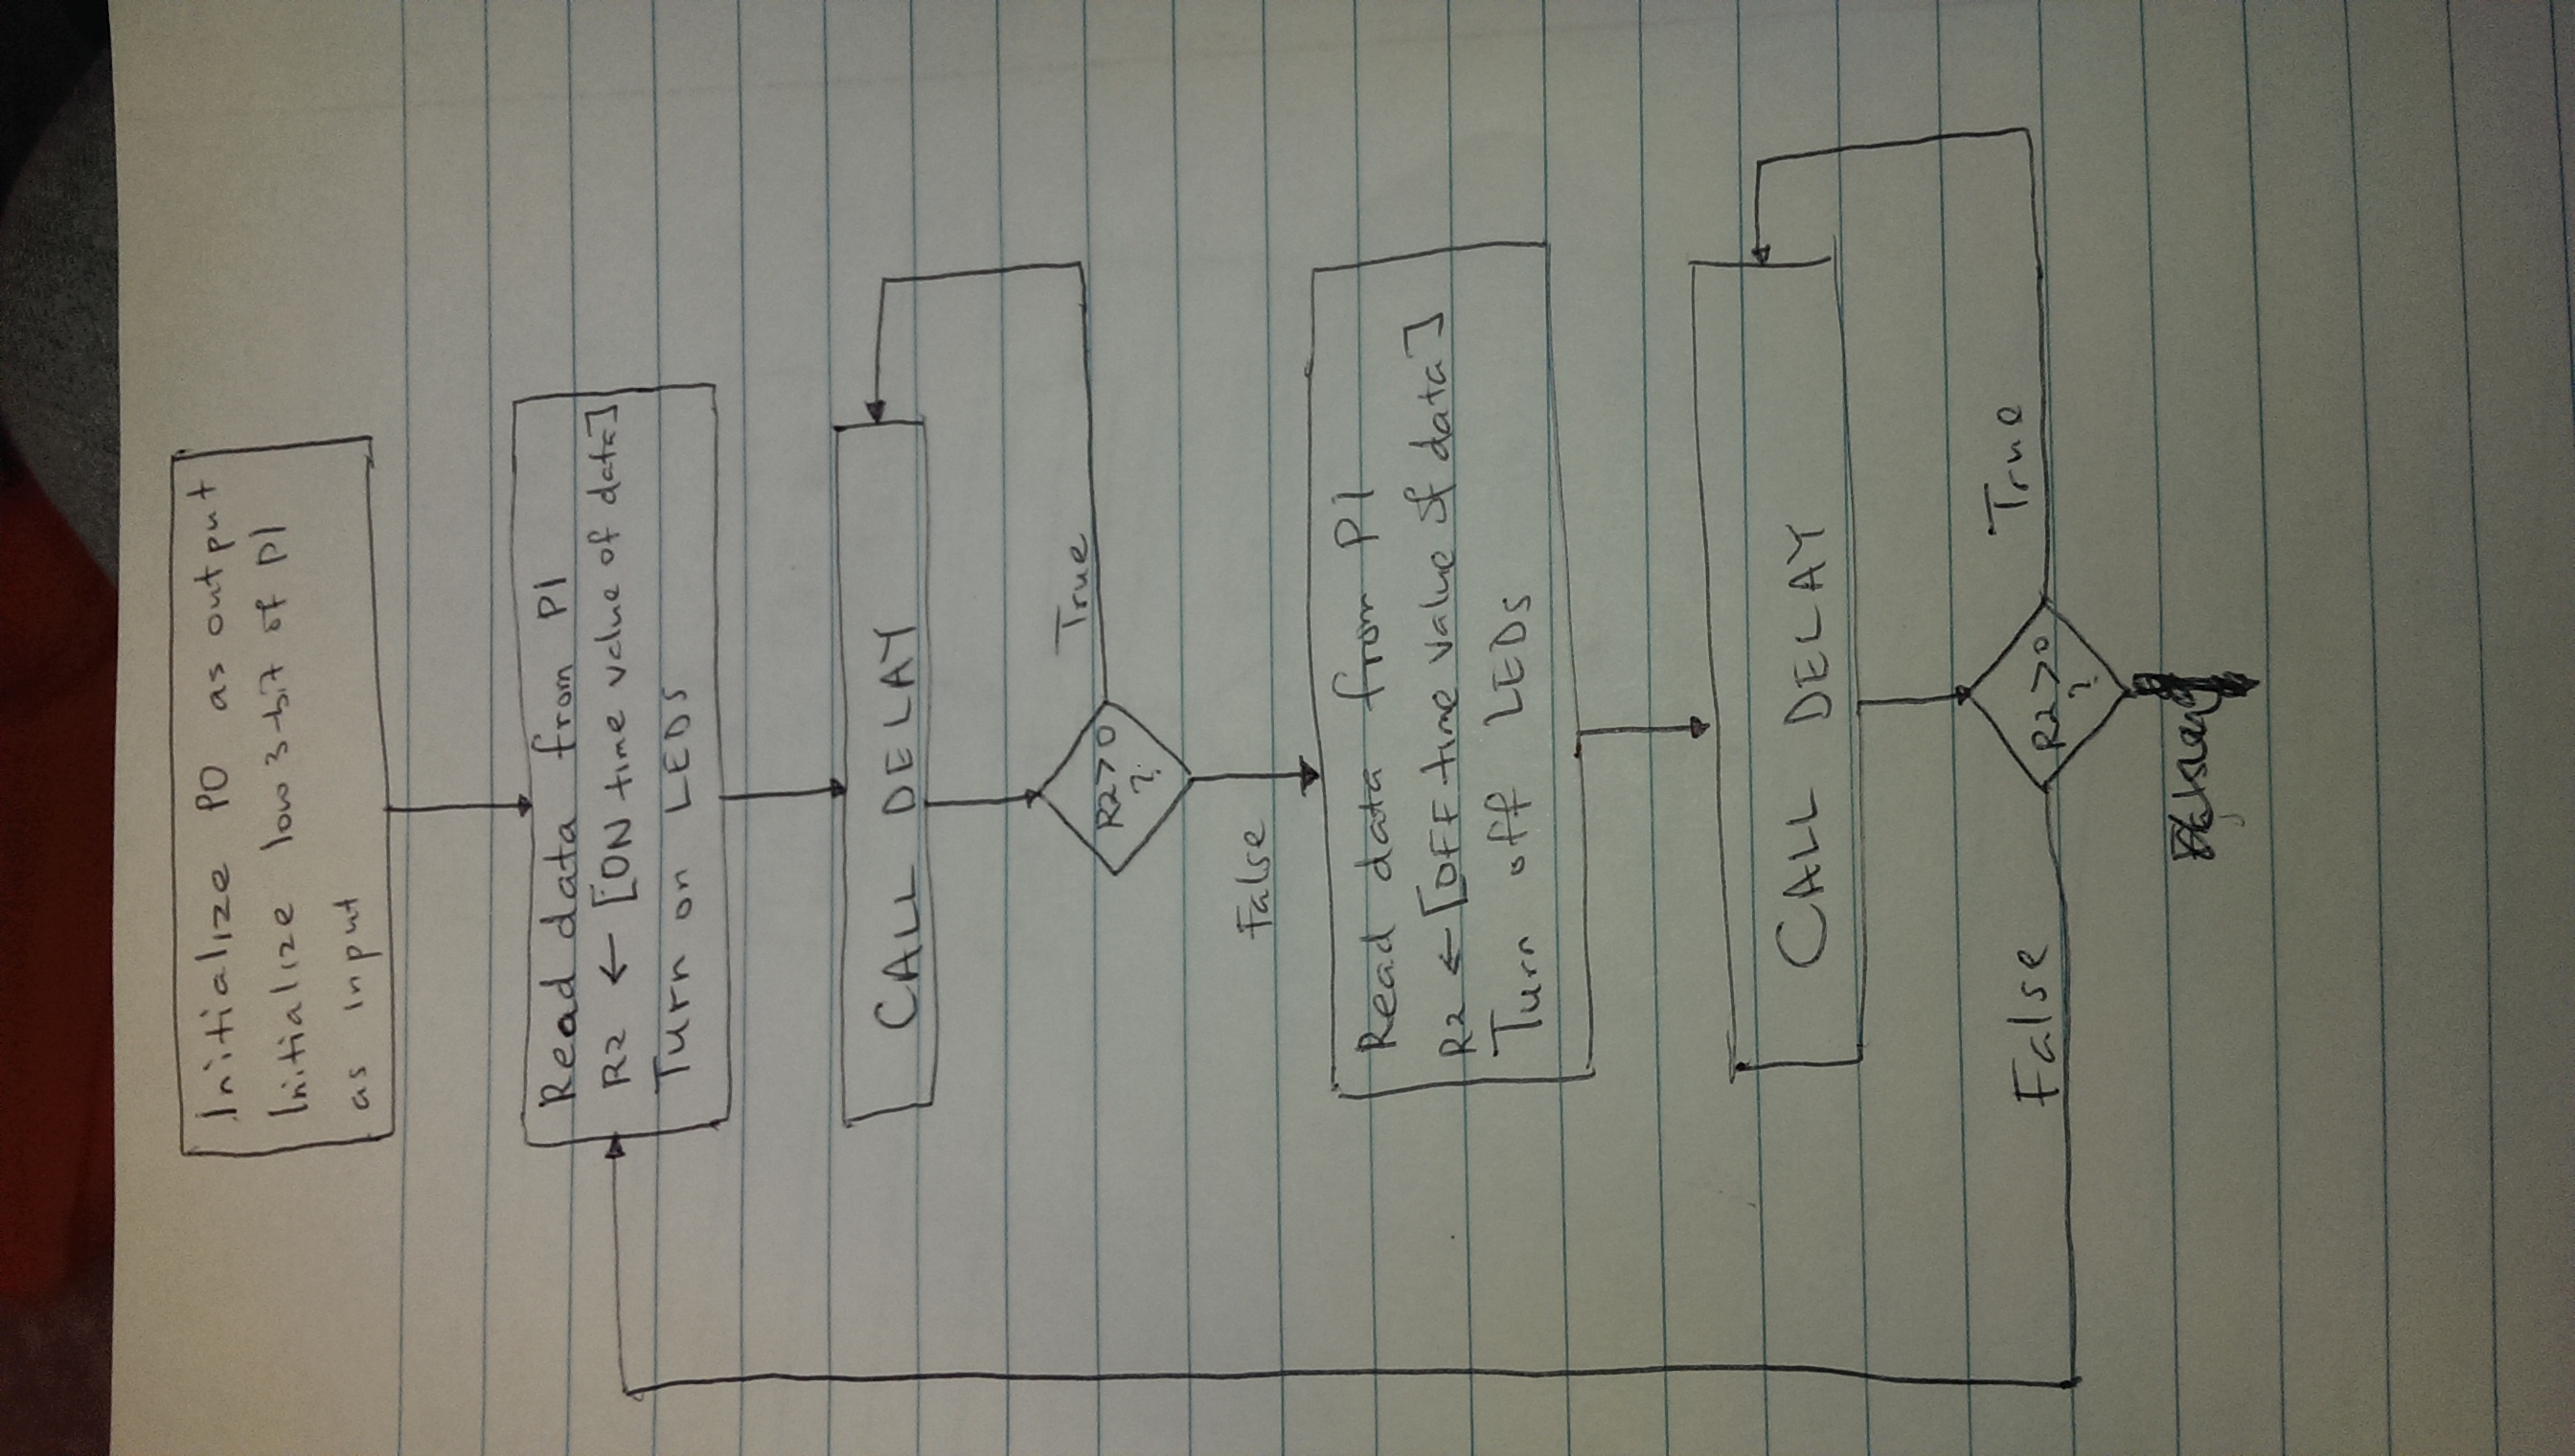 Initialize P0 as output
Initialize low 3-bit of P1
as input
Read data from P1
R2 ← [ON time value of data]
Turn on LEDS
CALL DELAY
R2>0
?
True
False
Read data from P1
R2 ← [OFF time value of data]
Turn off LEDs
CALL DELAY
R2>0
?
True
False